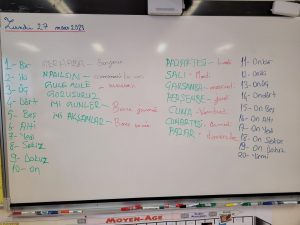 Lundi 27 mars 2023
1- Bir
2- iki
3- Üç
4- Dört
5- Beş
6- Alti
7- Yedi
8- Sekiz
9- Dokuz
10- on
MERHABA - Bonjour
NAPILSIN - comment
GULE GULE =
GORUSURUZ
IYI GUNLER - Bonne journée
IYI AKSAMLAR - Bonne soirée
PAZARTESI - Lundi
SALI - Mardi
ÇARSAMBA - mercredi
PERSENBE - jeudi
CUMA - Vendredi
CUMARTESI - samedi
PAZAR - dimanche
11- On bir
12- On iki
13- On üç
14- On dört
15- On Beş
16- On Alti
17- On Yedi
18- On Sekiz
19- On Dokuz
20- Yirmi
MOYEN-AGE